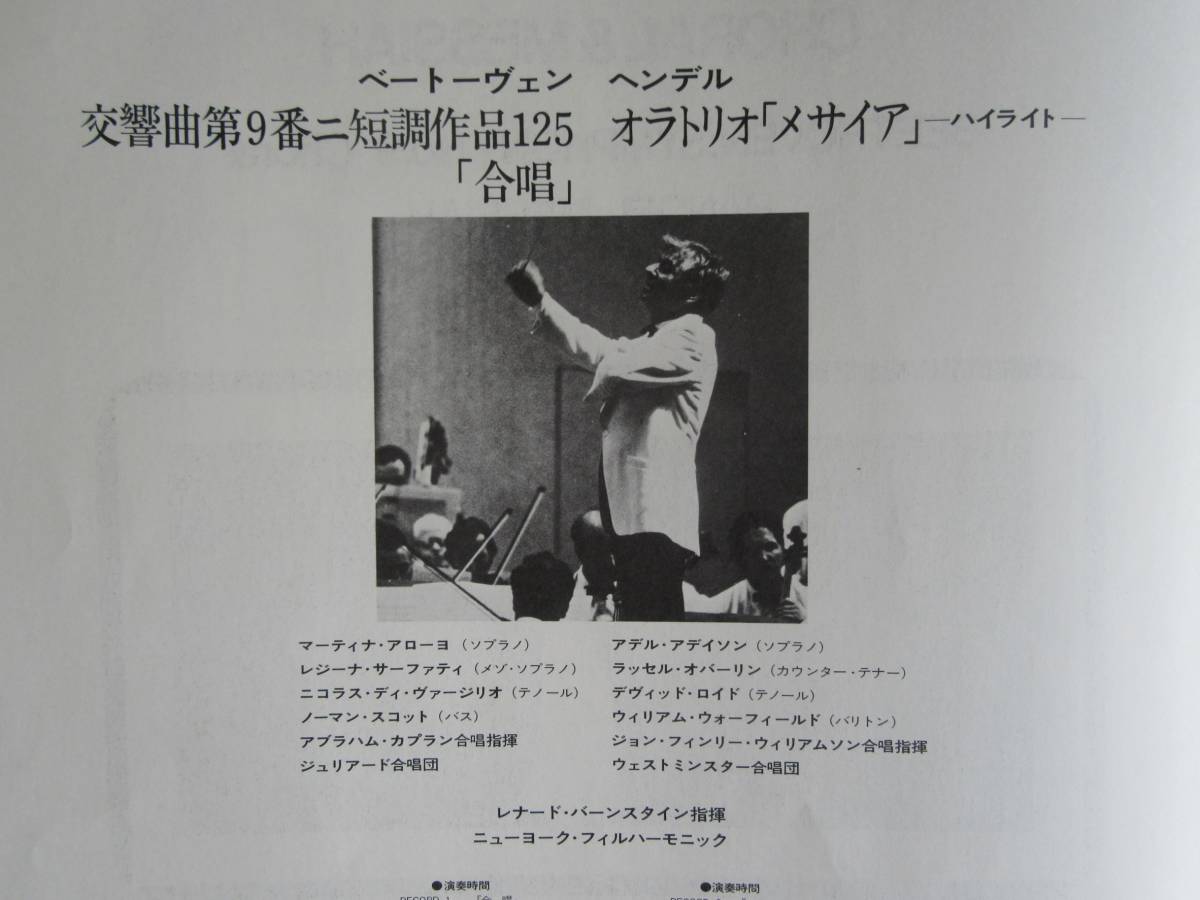 ベートーヴェン
交響曲第9番ニ短調作品125
「合唱」
ヘンデル
オラトリオ「メサイア」—ハイライト—
マーティナ・アローヨ（ソプラノ）
レジーナ・サーファティ（メゾ・ソプラノ）
ニコラス・ディ・ヴァージリオ（テノール）
ノーマン・スコット（バス）
アブラハム・カプラン合唱指揮
ジュリアード合唱団
アデル・アデイソン（ソプラノ）
ラッセル・オバーリン（カウンター・テナー）
デヴィッド・ロイド（テノール）
ウィリアム・ウォーフィールド（バリトン）
ジョン・フィンリー・ウィリアムソン合唱指揮
ウェストミンスター合唱団
レナード・バーンスタイン指揮
ニューヨーク・フィルハーモニック
●演奏時間
●演奏時間